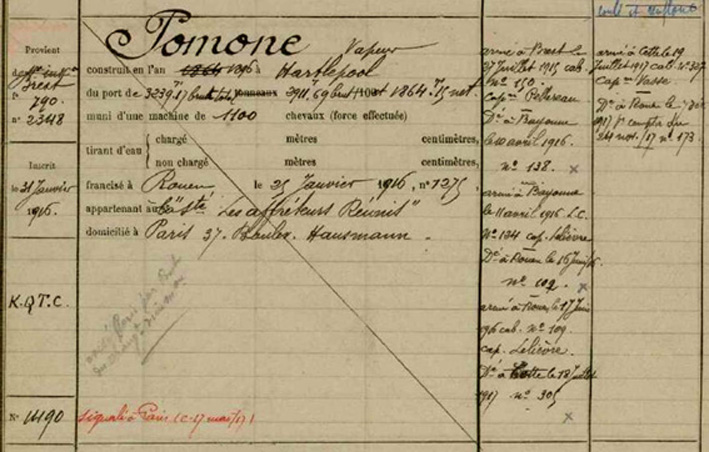 Provient
de
Brest
f° 790.
n° 2348
Inscrit
le 31 Janvier
1916.
K.Q.T.C.
N° 1490
Pomone Vapeur
construit en l'an 1864 1896 à Hartlepool
du port de 3239.17 brut tonneaux 2911.69 brut 1864.75 net
muni d'une machine de 1100 chevaux (force effectuée)
tirant d'eau { chargé mètres centimètres,
non chargé mètres centimètres,
francisé à Rouen le 25 Janvier 1916, n° 1275
appartenant au à "Sté Les affréteurs Réunis"
domicilié à Paris 37. Boulev. Hausmann.
signalé à Paris (C. 17 mars/17)
armé à Brest le
27 Juillet 1915 cab.
n° 150.
Cap.
Dé à Bayonne
le 10 avril 1916.
n° 138. x
armé à Bayonne
le 11 avril 1916 L.C.
N° 124 cap. Lelièvre
Dé à Rouen le 16 Juin/16
n° 102. x
armé à Rouen le 17 Juin
1916 cab. n° 109.
cap. Lelièvre.
Dé à Cette le 18 Juillet
1917 n° 305
x
armé à Cette le 19
Juillet 1917 cab. n° 327
Cap. Vasse.
Dé à Rouen le
1917 pr compter du
24 nov./17 n° 173.